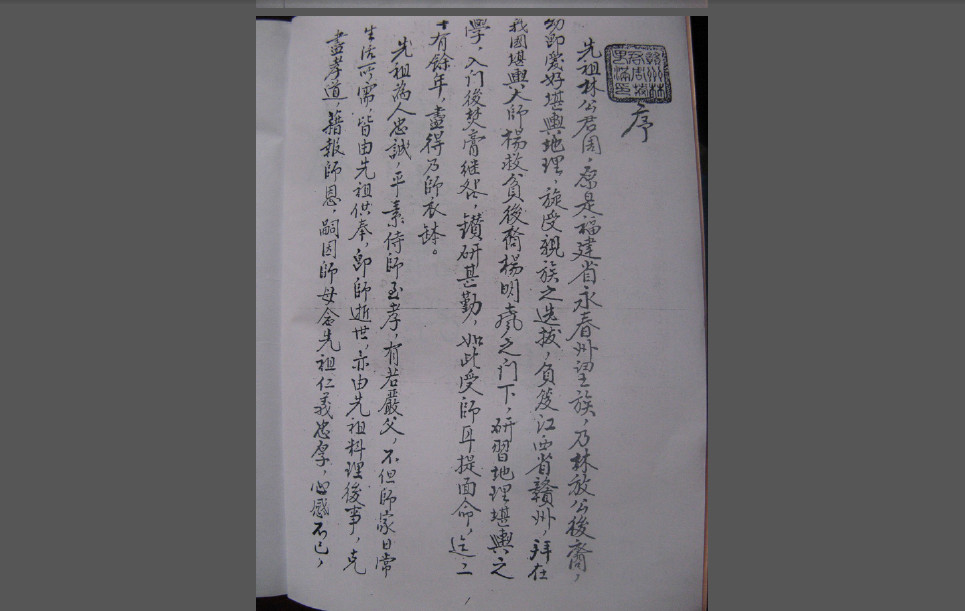 序
先祖林公君周,原是福建省永春州望族,乃林放公後裔,
幼即愛好堪輿地理,旋受親族之选拔,負笈江西省贛州,拜在
我國堪輿大師楊救貧後裔楊明 之门下,研習地理堪輿之
學,入门後焚膏继晷,鑽研甚勤,如此受師耳提面命,迄二
十有餘年,盡得乃師衣缽。
先祖為人忠誠,平素侍師至孝,有若嚴父,不但師家日常
生活所需,皆由先祖供奉,即師逝世,亦由先祖料理後事,克
盡孝道,藉報師恩,嗣因師母念先祖仁義忠厚,心感不已,